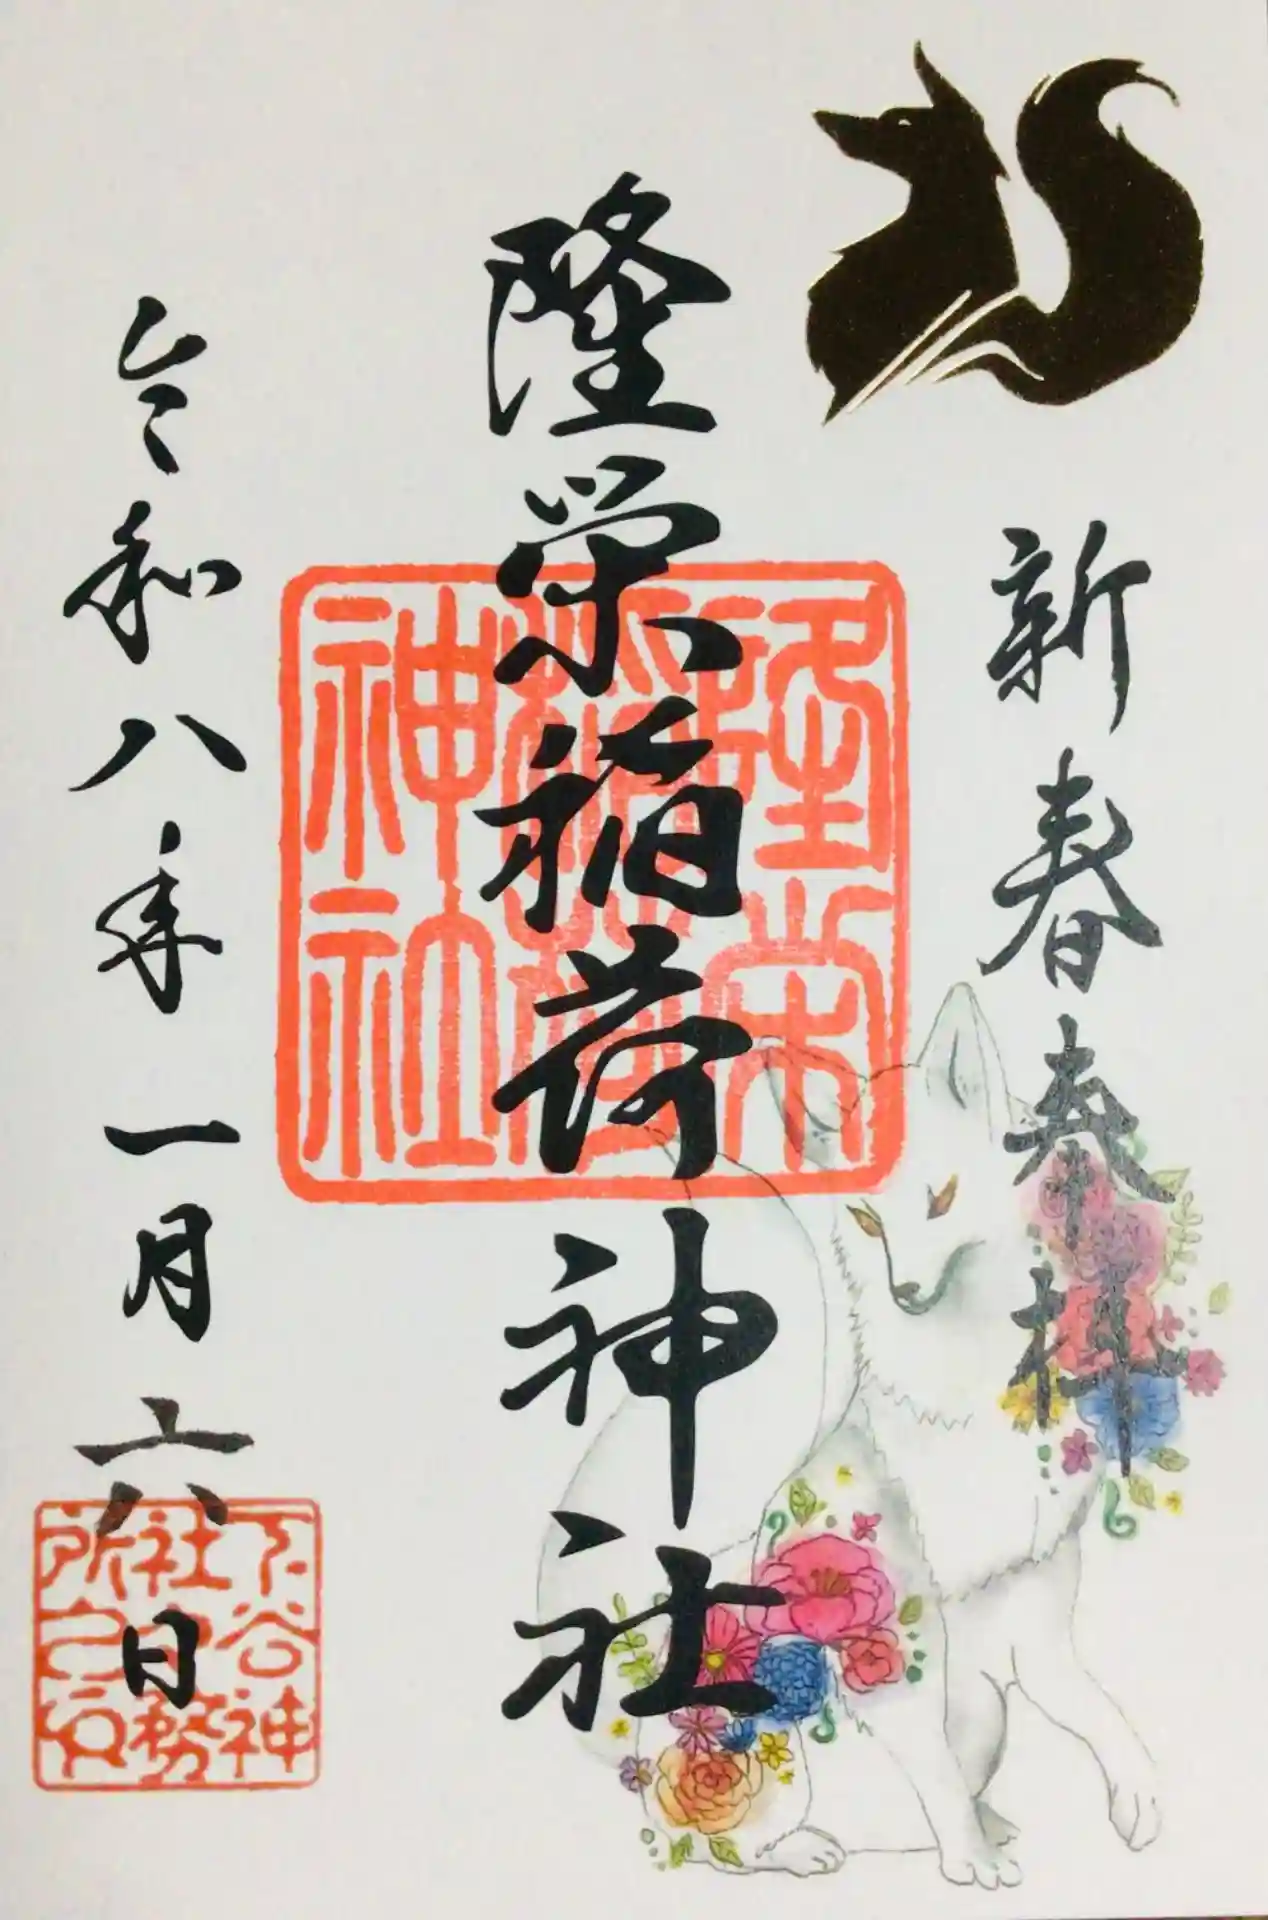 新春奉拝
隆栄稲荷神社
隆栄
稲荷
神社
令和八年一月六日
下谷神
社社務
所之印